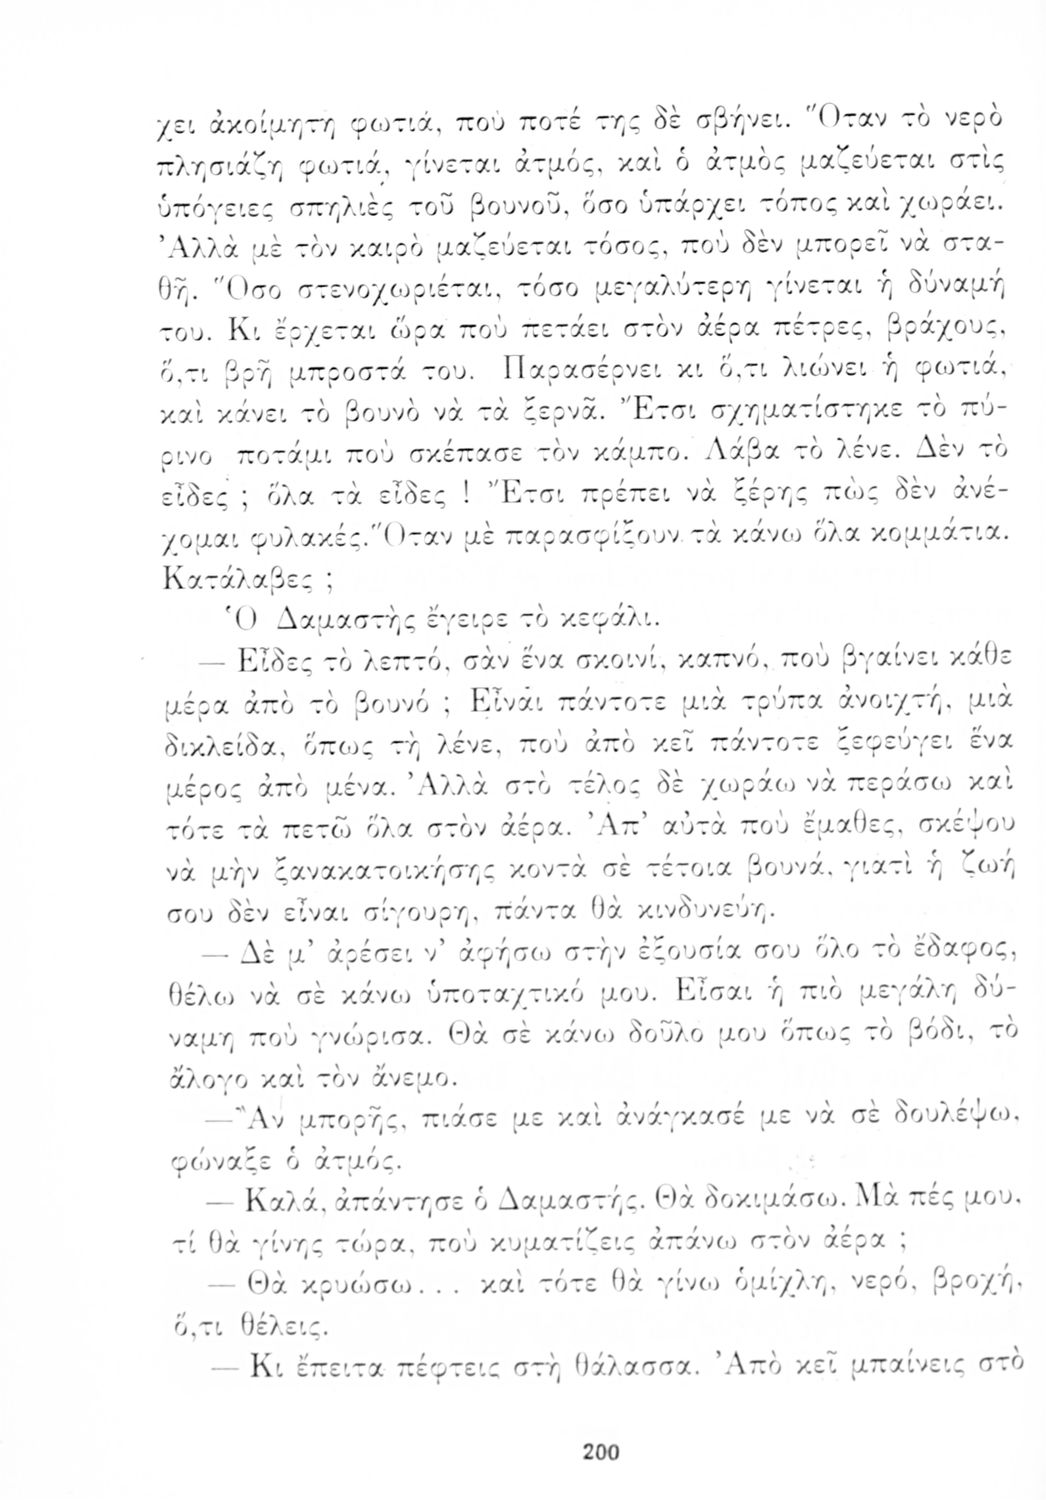 χει ἀκοίμητη φωτιά, ποὺ ποτέ της δὲ σβήνει. Ὅταν τὸ νερὸ
πλησιάζη φωτιά, γίνεται ἀτμός, καὶ ὁ ἀτμὸς μαζεύεται στὶς
ὑπόγειες σπηλιὲς τοῦ βουνοῦ, ὅσο ὑπάρχει τόπος καὶ χωράει.
Ἀλλὰ μὲ τὸν καιρὸ μαζεύεται τόσος, ποὺ δὲν μπορεῖ νὰ στα-
θῆ. Ὅσο στενοχωριέται, τόσο μεγαλύτερη γίνεται ἡ δύναμή
του. Κι ἔρχεται ὥρα ποὺ πετάει στὸν ἀέρα πέτρες, βράχους,
ὅ,τι βρῆ μπροστά του. Παρασέρνει κι ὅ,τι λιώνει ἡ φωτιά,
καὶ κάνει τὸ βουνὸ νὰ τὰ ξερνᾶ. Ἔτσι σχηματίστηκε τὸ πύ-
ρινο ποτάμι ποὺ σκέπασε τὸν κάμπο. Λάβα τὸ λένε. Δὲν τὸ
εἶδες ; ὅλα τὰ εἶδες ! Ἔτσι πρέπει νὰ ξέρης πὼς δὲν ἀνέ-
χομαι φυλακές. Ὅταν μὲ παρασφίξουν τὰ κάνω ὅλα κομμάτια.
Κατάλαβες ;
Ὁ Δαμαστὴς ἔγειρε τὸ κεφάλι.
— Εἶδες τὸ λεπτό, σὰν ἕνα σκοινί, καπνό, ποὺ βγαίνει κάθε
μέρα ἀπὸ τὸ βουνό ; Εἶναι πάντοτε μιὰ τρύπα ἀνοιχτή, μιὰ
δικλείδα, ὅπως τὴ λένε, ποὺ ἀπὸ κεῖ πάντοτε ξεφεύγει ἕνα
μέρος ἀπὸ μένα. Ἀλλὰ στὸ τέλος δὲ χωράω νὰ περάσω καὶ
τότε τὰ πετῶ ὅλα στὸν ἀέρα. Ἀπ’ αὐτὰ ποὺ ἔμαθες, σκέψου
νὰ μὴν ξανακατοικήσης κοντὰ σὲ τέτοια βουνά, γιατὶ ἡ ζωή
σου δὲν εἶναι σίγουρη, πάντα θὰ κινδυνεύη.
— Δὲ μ’ ἀρέσει ν’ ἀφήσω στὴν ἐξουσία σου ὅλο τὸ ἔδαφος,
θέλω νὰ σὲ κάνω ὑποταχτικό μου. Εἶσαι ἡ πιὸ μεγάλη δύ-
ναμη ποὺ γνώρισα. Θὰ σὲ κάνω δοῦλο μου ὅπως τὸ βόδι, τὸ
ἄλογο καὶ τὸν ἄνεμο.
— Ἂν μπορῆς, πιάσε με καὶ ἀνάγκασέ με νὰ σὲ δουλέψω,
φώναξε ὁ ἀτμός.
— Καλά, ἀπάντησε ὁ Δαμαστής. Θὰ δοκιμάσω. Μὰ πές μου,
τί θὰ γίνης τώρα, ποὺ κυματίζεις ἀπάνω στὸν ἀέρα ;
— Θὰ κρυώσω... καὶ τότε θὰ γίνω ὁμίχλη, νερό, βροχή,
ὅ,τι θέλεις.
— Κι ἔπειτα πέφτεις στὴ θάλασσα. Ἀπὸ κεῖ μπαίνεις στὸ
200